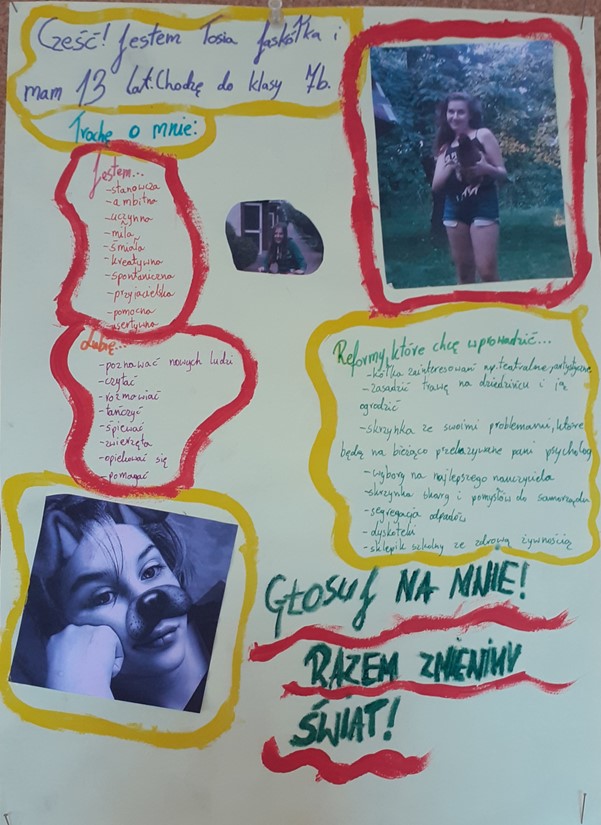 Cześć! Jestem Tosia Jaskółka i
mam 13 lat. Chodzę do klasy 7b.
Trochę o mnie:
Jestem...
- stanowcza
- ambitna
- uczynna
- miła
- śmiała
- kreatywna
- spontaniczna
- przyjacielska
- pomocna
- asertywna
Lubię...
- poznawać nowych ludzi
- czytać
- rozmawiać
- tańczyć
- śpiewać
- zwierzęta
- opiekować się
- pomagać
Reformy, które chcę wprowadzić...
- kółka zainteresowań np. teatralne, artystyczne
- zasadzić trawę na dziedzińcu i ją
ogrodzić
- skrzynka ze swoimi problemami, które
będą na bieżąco przekazywane pani psycholog
- wybory na najlepszego nauczyciela
- skrzynka skarg i pomysłów do samorządu
- segregacja odpadów
- dyskoteki
- sklepik szkolny ze zdrową żywnością
GŁOSUJ NA MNIE!
RAZEM ZMIENIMY
ŚWIAT!